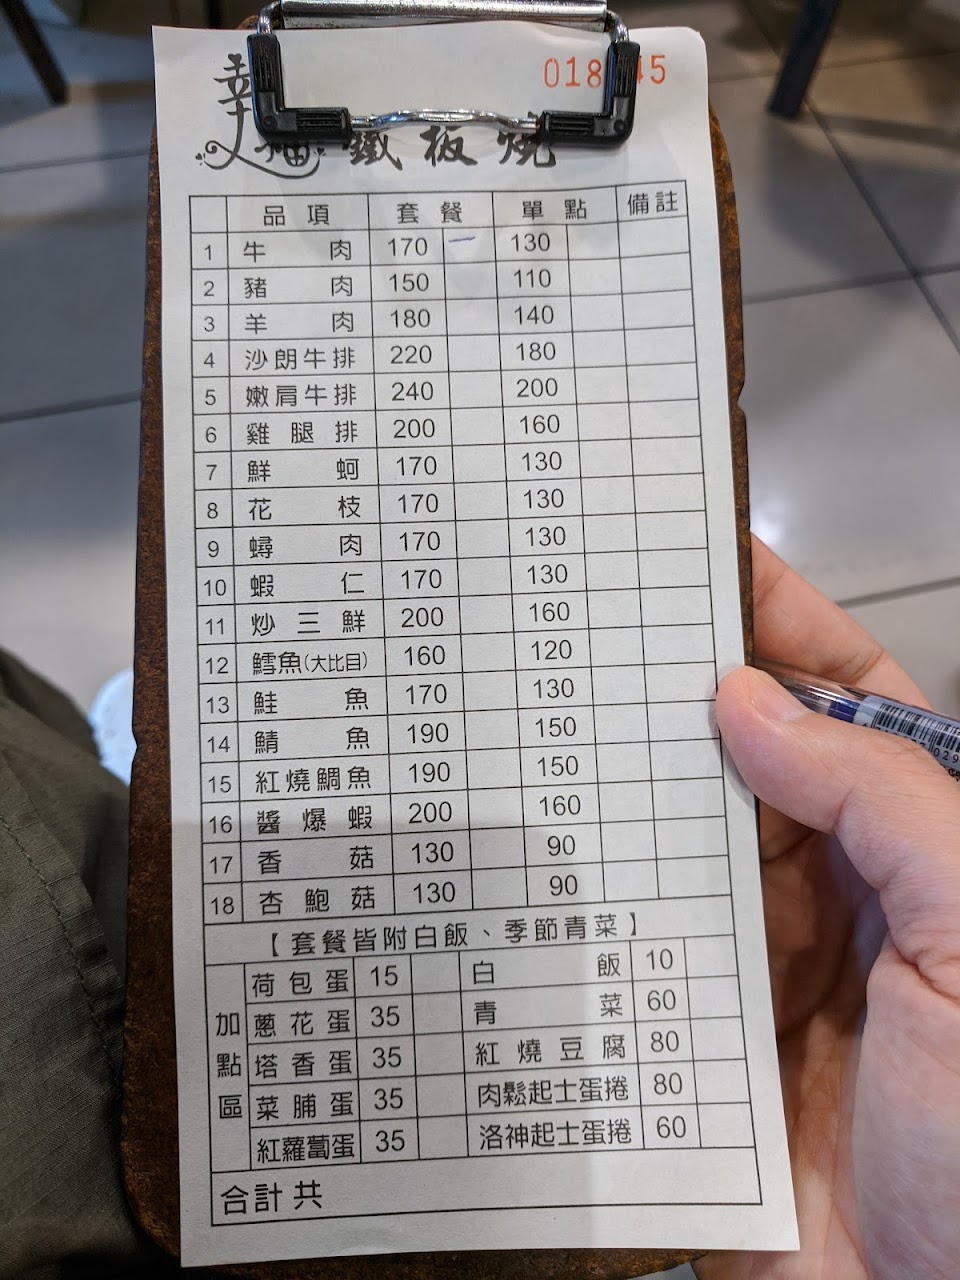 018 45
幸福 鐵板燒
品項 套餐 單點 備註
1 牛肉 170 一 130
2 豬肉 150 110
3 羊肉 180 140
4 沙朗牛排 220 180
5 嫩肩牛排 240 200
6 雞腿排 200 160
7 鮮蚵 170 130
8 花枝 170 130
9 蟳肉 170 130
10 蝦仁 170 130
11 炒三鮮 200 160
12 鱈魚(大比目) 160 120
13 鮭魚 170 130
14 鯖魚 190 150
15 紅燒鯛魚 190 150
16 醬爆蝦 200 160
17 香菇 130 90
18 杏鮑菇 130 90
【套餐皆附白飯、季節青菜】
加點區
荷包蛋 15 白飯 10
蔥花蛋 35 青菜 60
塔香蛋 35 紅燒豆腐 80
菜脯蛋 35 肉鬆起士蛋捲 80
紅蘿蔔蛋 35 洛神起士蛋捲 60
合計共